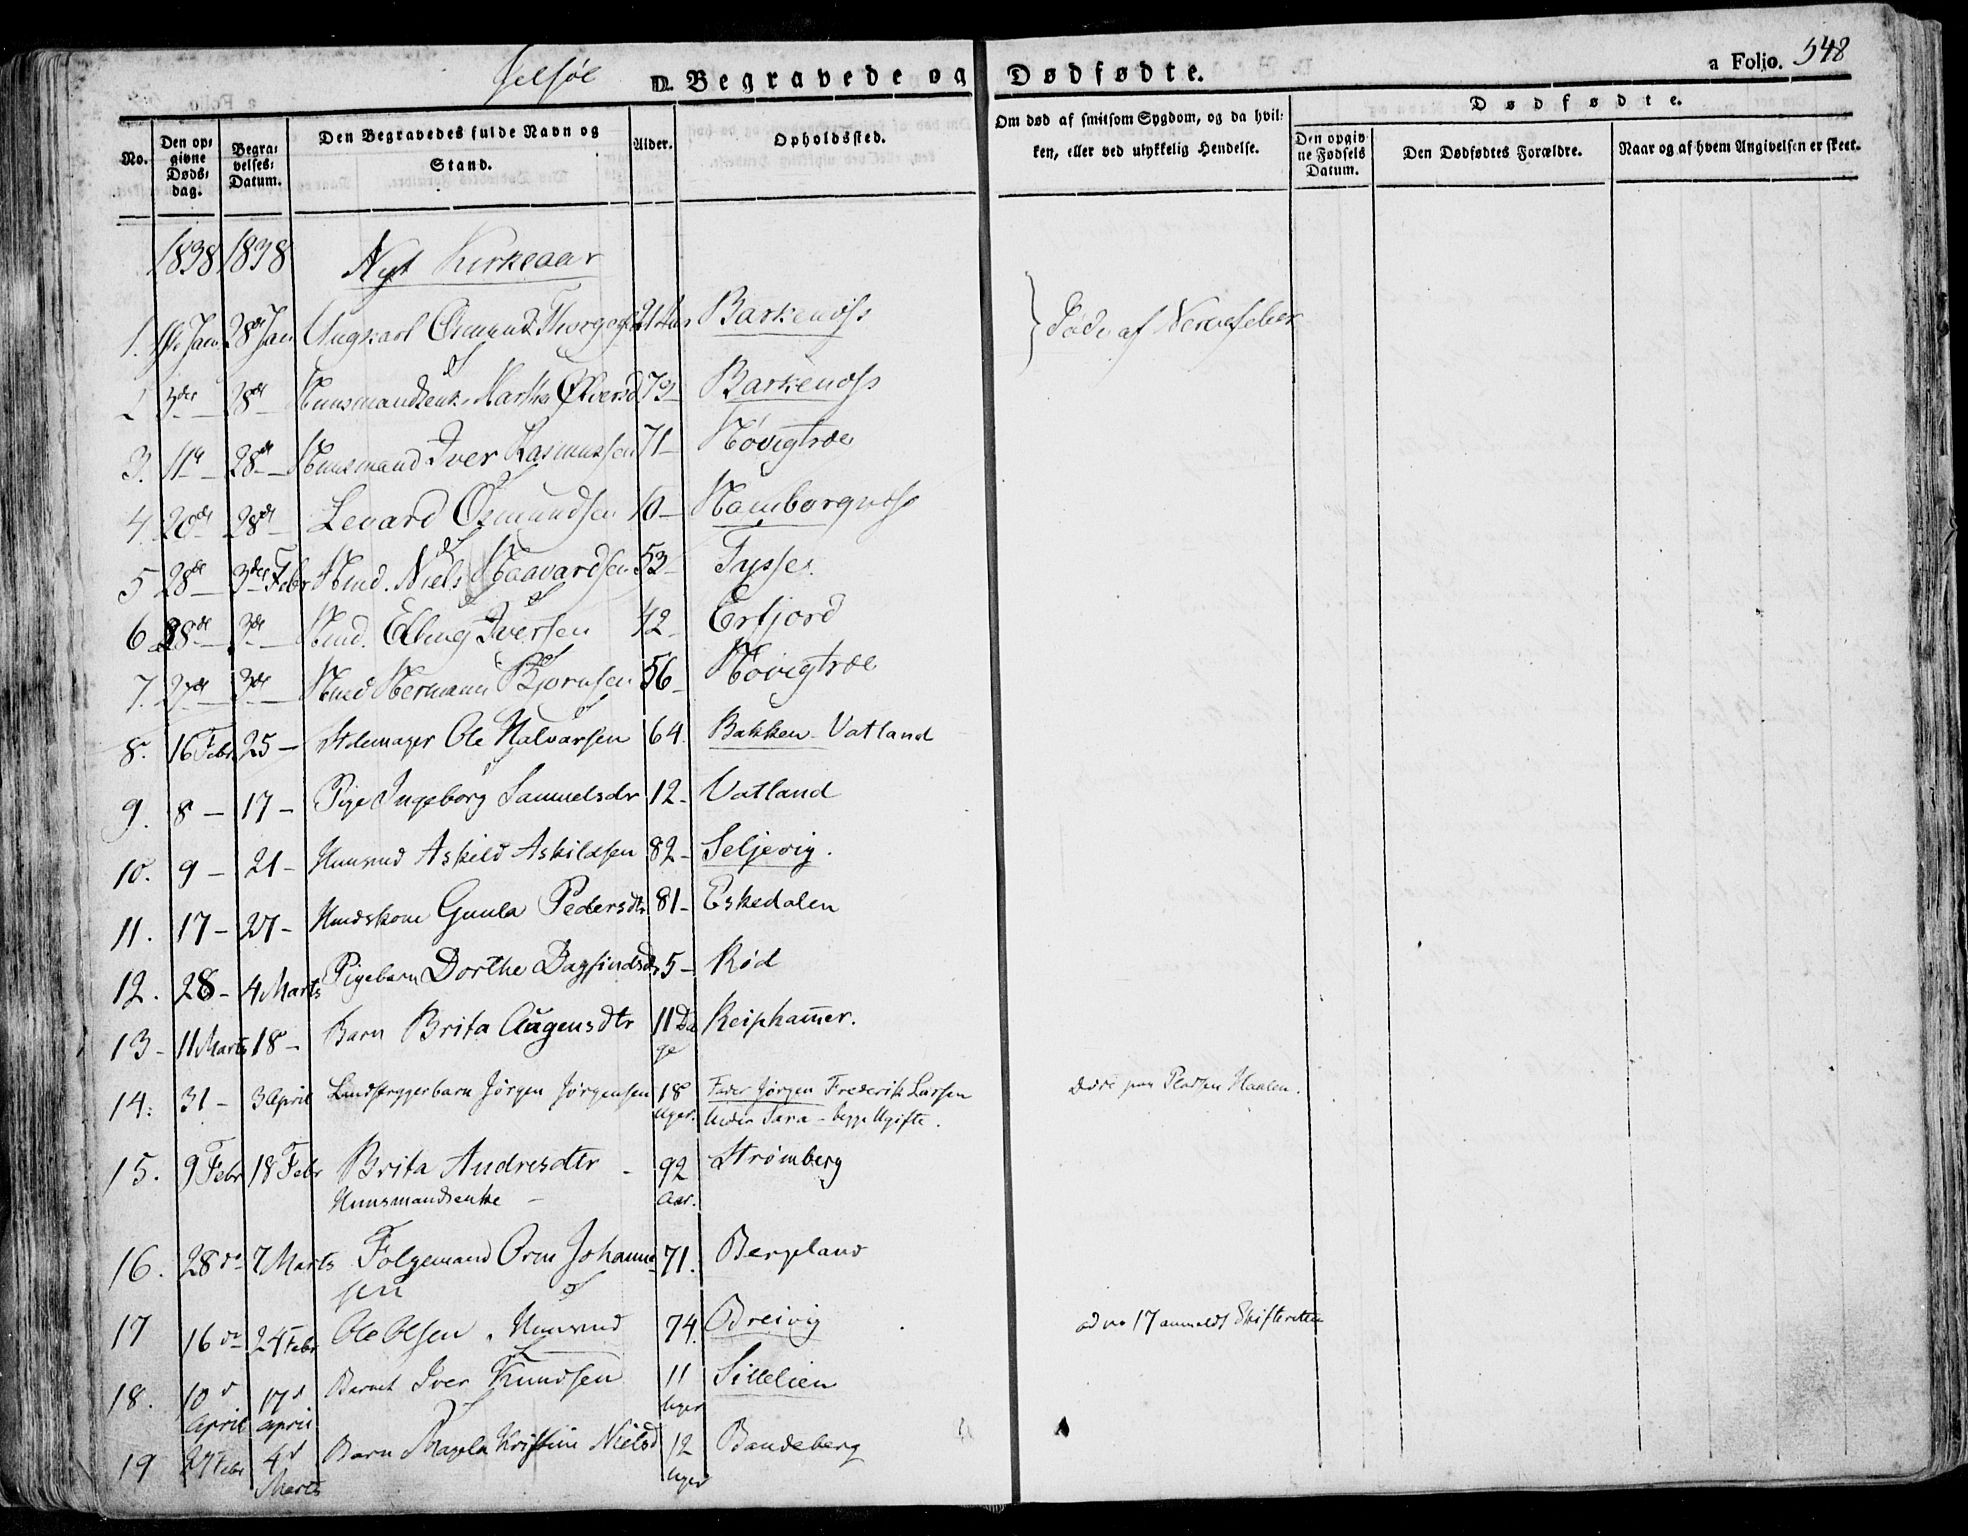 Jelsøe D. Begravede og Dødfødte. a Folio. 548
No. Den opgivne Dødsdag. Begravelses: Datum. Den Begravedes fulde Navn og Stand. Alder. Opholdssted. Om død af smitsom Sygdom, og da hvilken, eller ved ulykkelig Hendelse. Dødfødte. Den opgivne Fødsels Datum. Den Dødfødtes Forældre. Naar og af hvem Angivelsen er skeet.
1838 1838 Nyt Kirkeaar
1. Jan 28de Jan Ungkarl Osmund 21 Aar Barkenæss Døde af Nervefeber
2 3die 28de Huusmandsenke Martha 73 Barkenæss
3. 11te 28de Huusmand Iver Rasmussen 71 Høvigtræe
4. 20de 28de Levard Osmundsen 10 Hamborgnæss
5 28de 3die Febr Hmd. Niels Haavardsen 53 Tysse
6 28de 3die Hmd. Elling Iversen 42 Erfjord
7. 27de 3die Hmd Hermann Bjørnsen 56 Høvigtræe
8. 16 Febr 25 Ole Halvorsen 64. Bakken Vatland
9. 8 17 Pige Ingeborg Samuelsdtr 12 Vatland
10. 9 21 Huusmd Askild Askildsen 82 Seljevig.
11. 17 27 Hmdskone Gunla Pedersdtr 81 Eskedalen
12. 28 4 Marts Pigebarn Dorthe Dagfindsdr 5 Rød
13 11 Marts 18 Barn Brita Augensdtr 11 Dage Reiphamer.
14. 31 3 April Landstrygerbarn Jørgen Jørgensen 18 Uger. Fader Jørgen Frederik Larsen
Moder Sara - begge Ugifte.
Døde paa Pladsen Haalen.
15. 9 Febr 18 Febr Brita Andresdtr 92 Aar. Strømberg
Huusmandsenke
16. 28 do 7 Marts Følgemand Orm Johannesen 71. Bergeland
17 16 do 24 Febr Ole Olsen. Huusmd 74. Breivig ad no 17 anmeldt Skifteretten
18. 10 d April 17 d April Barnet Iver Knudsen 11 Uger Sillelien
19 27 Febr 4 d Marts Barn Kristine Nielsd 12 Uger Bandeberg